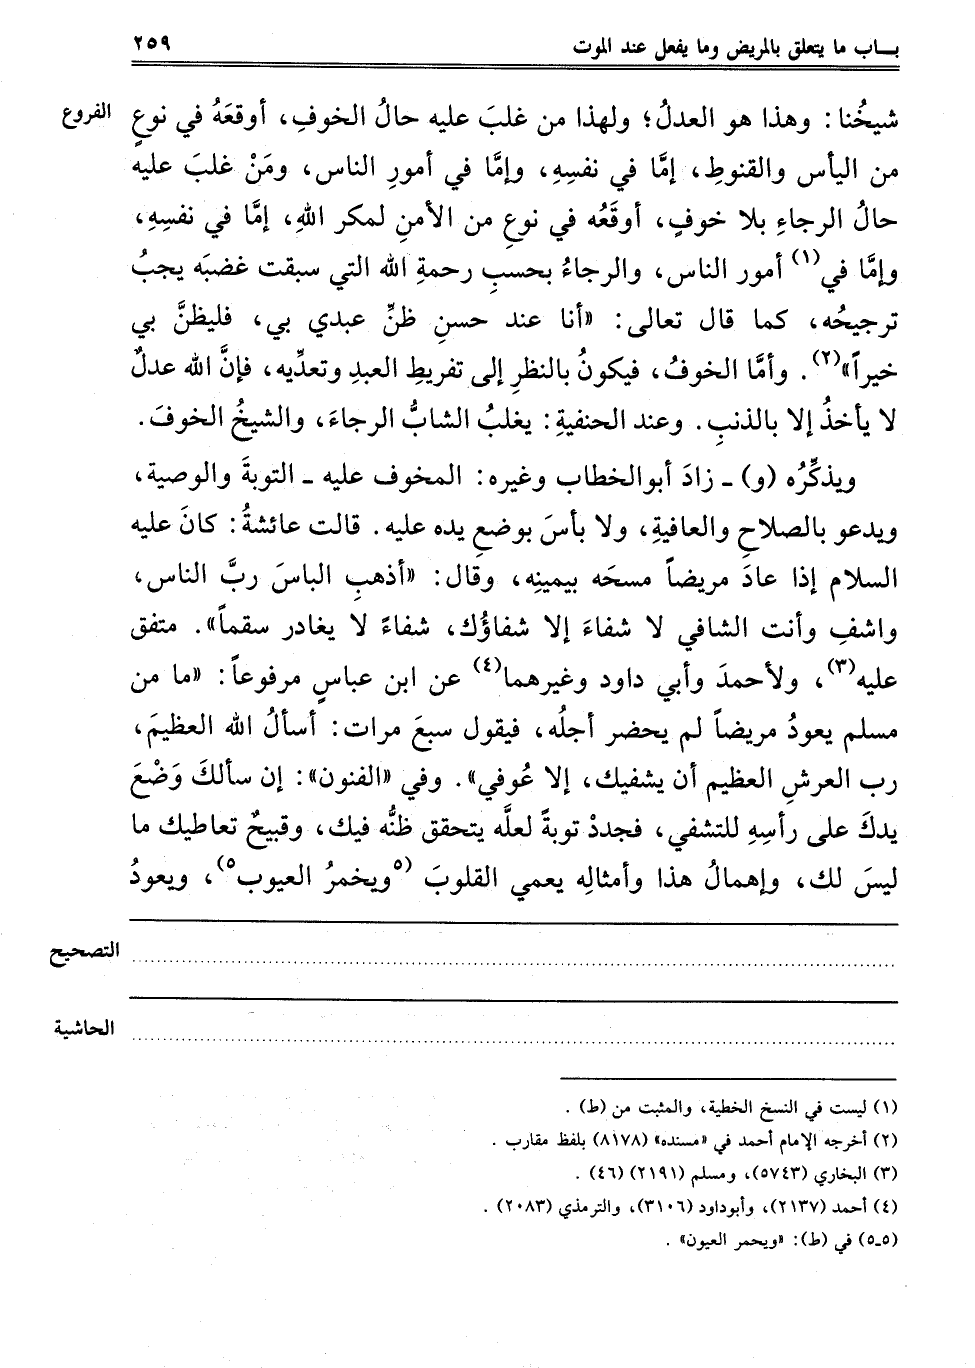 بـــاب ما يتعلق بالمريض وما يفعل عند الموت ٢٥٩
شيخُنا: وهذا هو العدلُ؛ ولهذا من غلبَ عليه حالُ الخوفِ، أوقعَهُ في نوعٍ الفروع
من اليأس والقنوطِ، إمَّا في نفسِهِ، وإمَّا في أمورِ الناس، ومَنْ غلبَ عليه
حالُ الرجاءِ بلا خوفٍ، أوقَعُه في نوعِ من الأمنِ لمكر اللهِ، إمَّا في نفسِهِ،
وإمَّا في(١) أمور الناس، والرجاءُ بحسبِ رحمةِ الله التي سبقت غضبَه يجبُ
ترجيحُه، كما قال تعالى: «أنا عند حسنِ ظنِّ عبدي بي، فليظنَّ بي
خيراً»(٢). وأمَّا الخوفُ، فيكونُ بالنظرِ إلى تفريطِ العبدِ وتعدِّيه، فإنَّ الله عدلٌ
لا يأخذُ إلا بالذنبِ. وعند الحنفيةِ: يغلبُ الشابُّ الرجاءَ، والشيخُ الخوفَ.
ويذكِّرُه (و) ـ زادَ أبوالخطاب وغيره: المخوف عليه ـ التوبةَ والوصية،
ويدعو بالصلاحِ والعافيةِ، ولا بأسَ بوضعِ يده عليه. قالت عائشةُ: كانَ عليه
السلام إذا عادَ مريضاً مسحَه بيمينِه، وقال: «أذهبِ الباسَ ربَّ الناس،
واشفِ وأنت الشافي لا شفاءَ إلا شفاؤُك، شفاءً لا يغادر سقماً». متفق
عليه(٣)، ولأحمدَ وأبي داود وغيرهما(٤) عن ابن عباسٍ مرفوعاً: «ما من
مسلم يعودُ مريضاً لم يحضر أجلُه، فيقول سبعَ مرات: أسألُ الله العظيمَ،
رب العرشِ العظيم أن يشفيك، إلا عُوفي». وفي «الفنون»: إن سألكَ وَضْعَ
يدكَ على رأسِهِ للتشفي، فجددْ توبةً لعلَّه يتحقق ظنُّه فيك، وقبيحٌ تعاطيك ما
ليسَ لك، وإهمالُ هذا وأمثالِه يعمي القلوبَ (٥ويخمرُ العيوب٥)، ويعودُ
التصحيح
الحاشية
(١) ليست في النسخ الخطية، والمثبت من (ط).
(٢) أخرجه الإمام أحمد في «مسنده» (٨١٧٨) بلفظ مقارب.
(٣) البخاري (٥٧٤٣)، ومسلم (٢١٩١) (٤٦).
(٤) أحمد (٢١٣٧)، وأبوداود (٣١٠٦)، والترمذي (٢٠٨٣).
(٥-٥) في (ط): «ويحمر العيون».